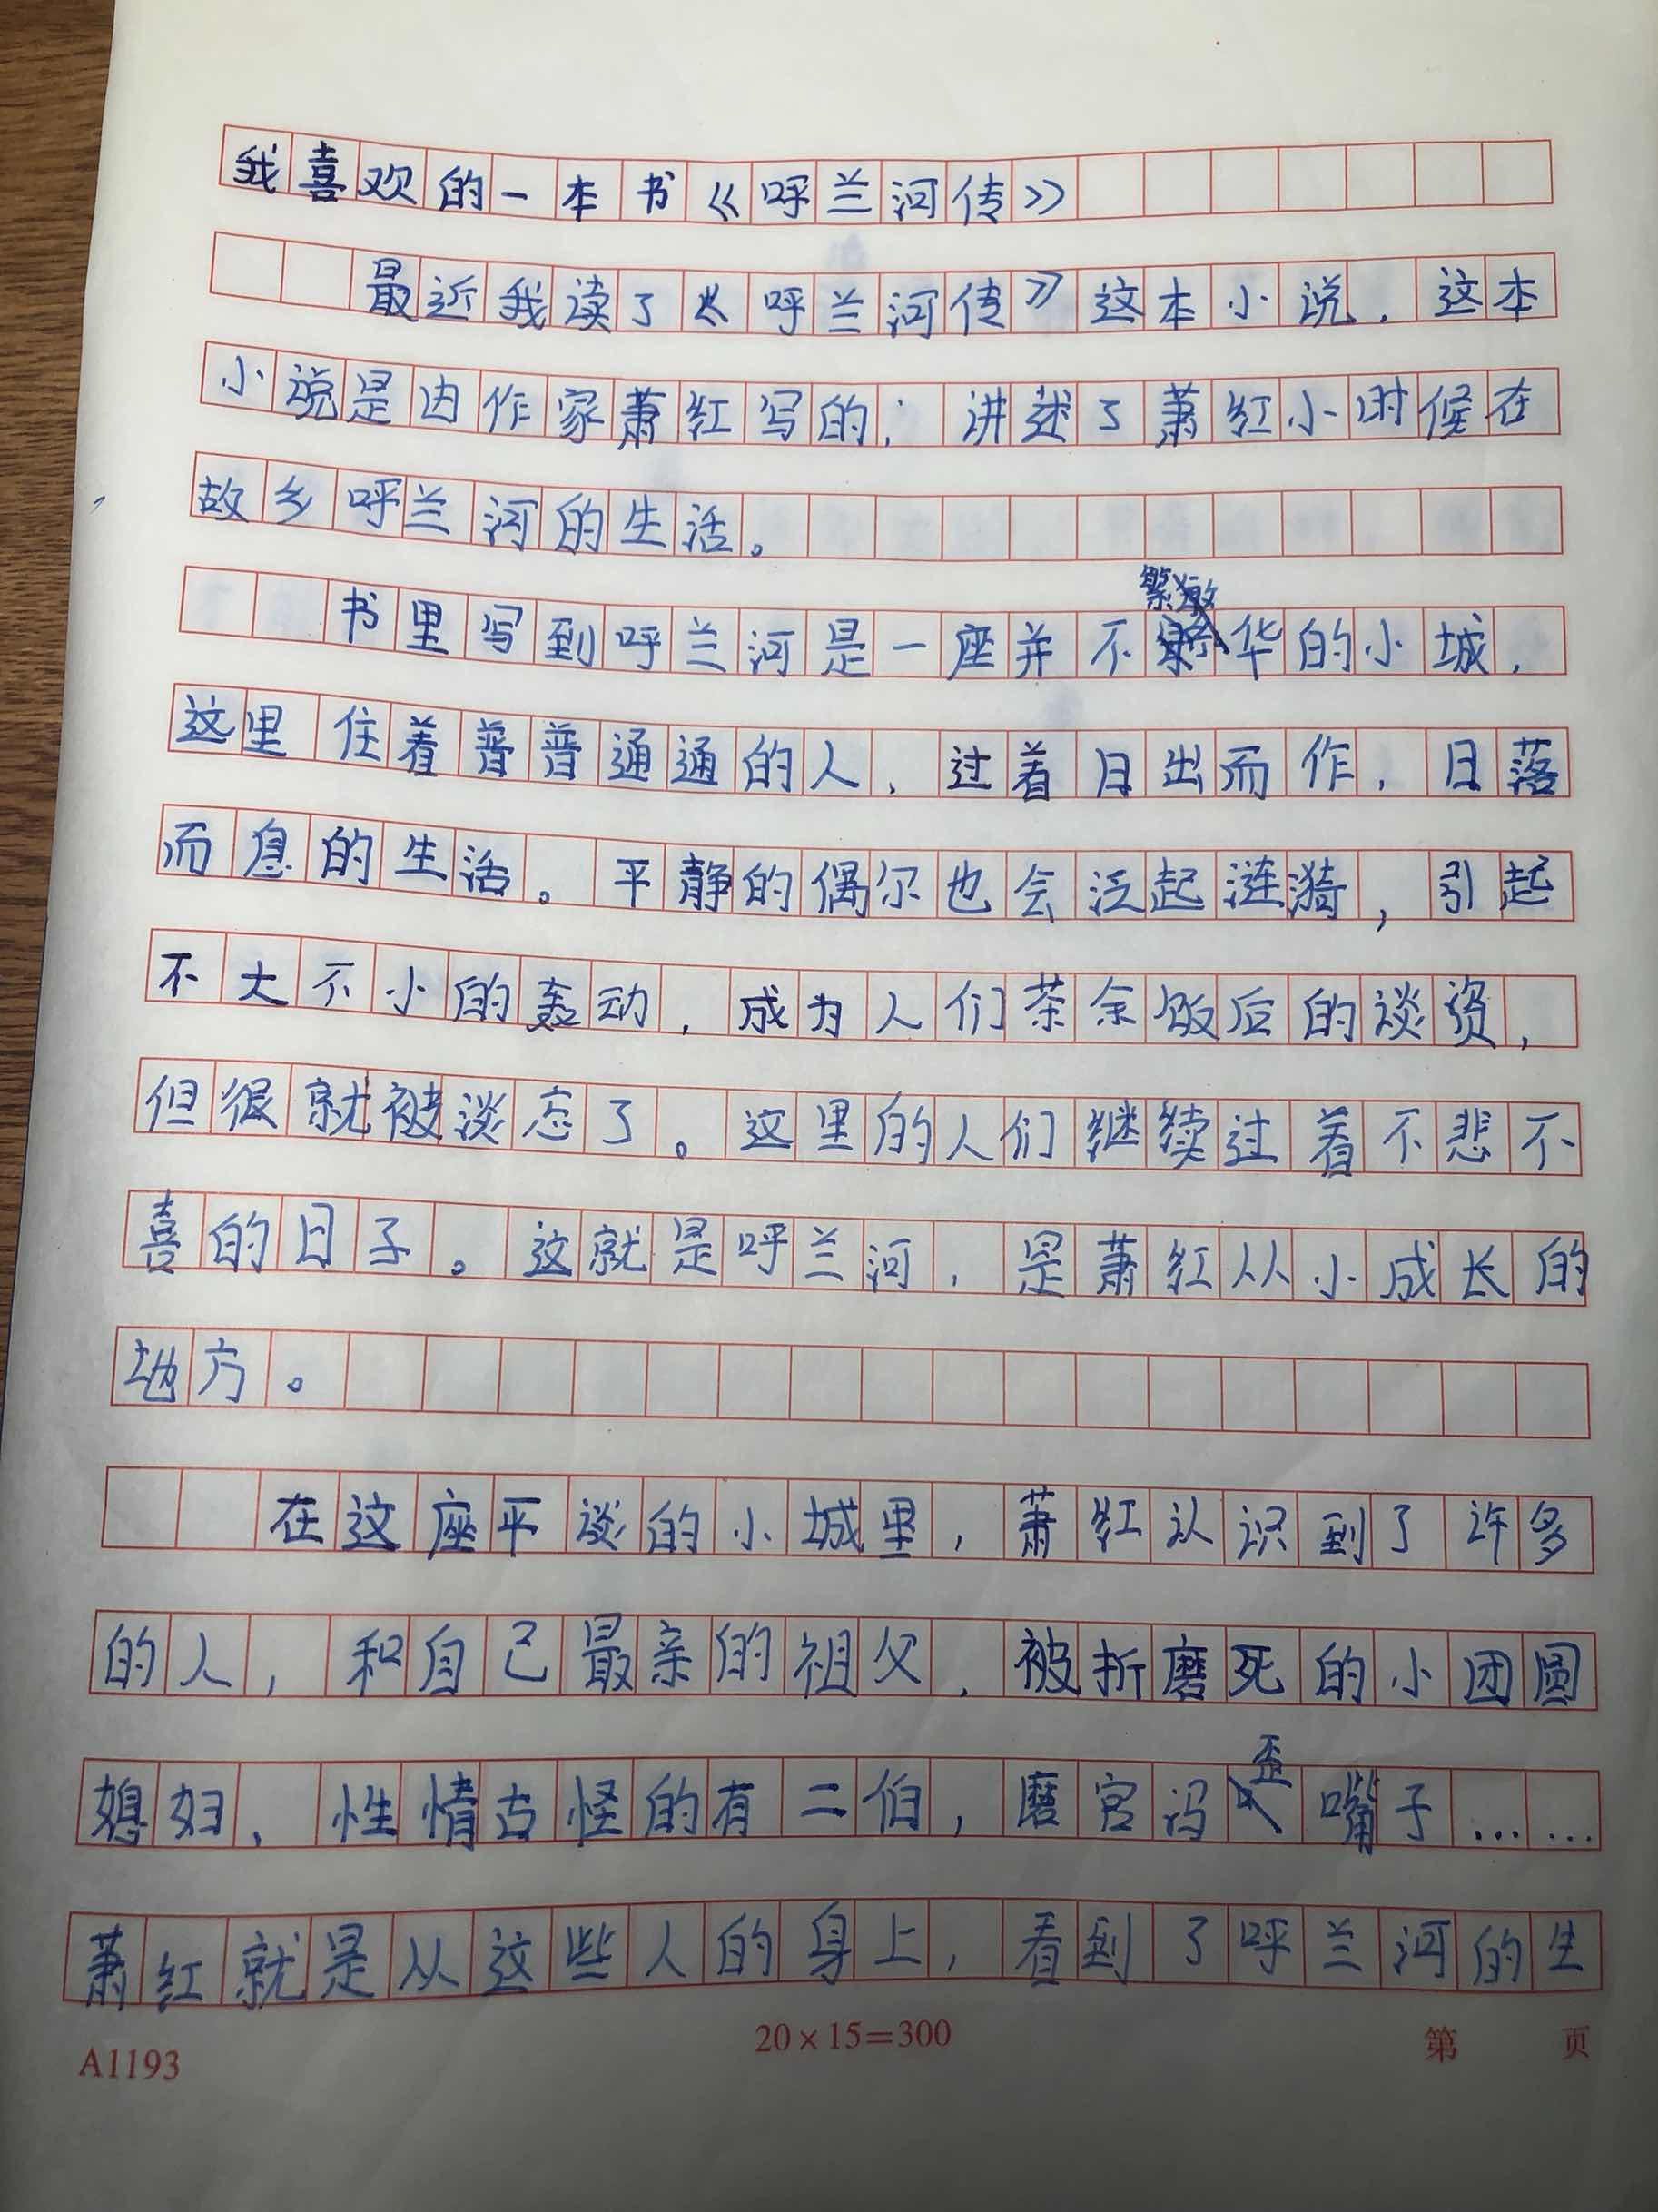 我喜欢的一本书《呼兰河传》
最近我读了《呼兰河传》这本小说，这本
小说是由作家萧红写的，讲述了萧红小时候在
故乡呼兰河的生活。
书里写到呼兰河是一座并不繁华的小城，
这里住着普普通通的人，过着日出而作，日落
而息的生活。平静的偶尔也会泛起涟漪，引起
不大不小的轰动，成为人们茶余饭后的谈资，
但很就被淡忘了。这里的人们继续过着不悲不
喜的日子。这就是呼兰河，是萧红从小成长的
地方。
在这座平谈的小城里，萧红认识到了许多
的人，和自己最亲的祖父，被折磨死的小团圆
媳妇，性情古怪的有二伯，磨官冯歪嘴子……
萧红就是从这些人的身上，看到了呼兰河的生
A1193
20×15=300
第 页